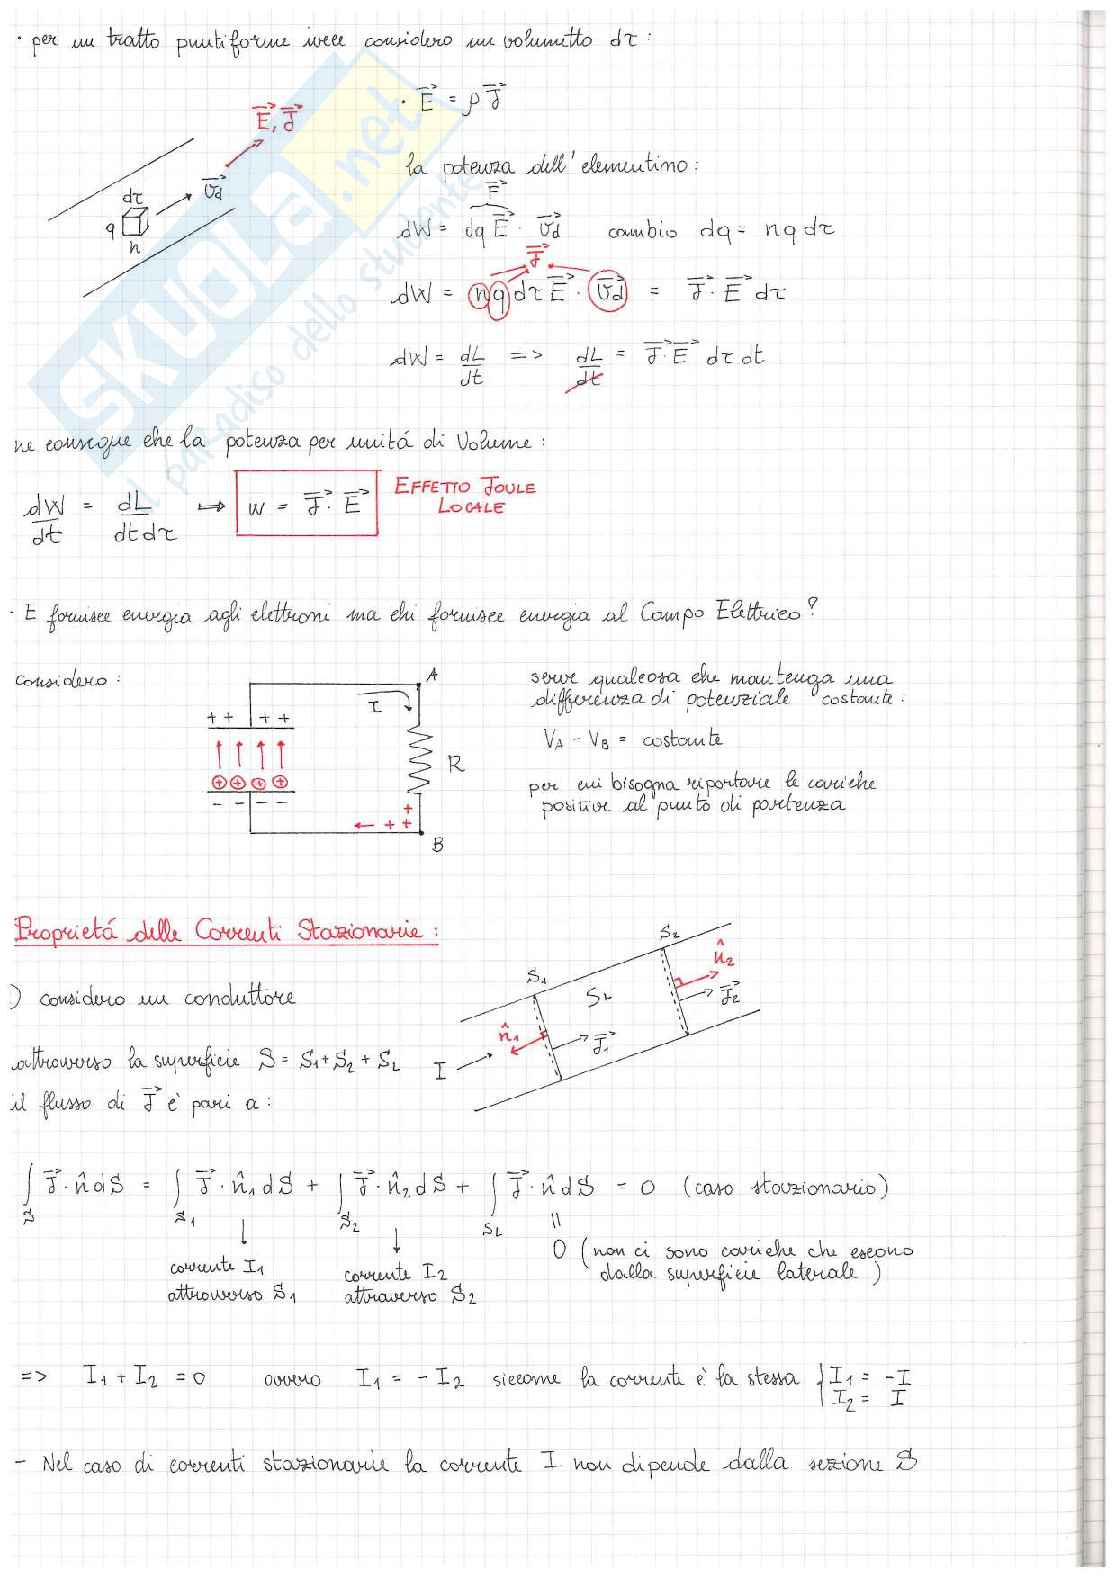 · per un tratto puntiforme invece considero un volumetto dτ :
· E⃗ = ρ J⃗
E⃗, J⃗
la potenza dell'elementino :
dτ
v⃗d
q
n
F⃗
dW = dq E⃗ · v⃗d   cambio dq = nq dτ
J⃗
dW = nq dτ E⃗ · v⃗d = J⃗ · E⃗ dτ
dW = dL/dt => dL/dt = J⃗ · E⃗ dτ dt
ne consegue che la potenza per unitá di Volume :
dW/dt = dL/dt dτ ↦ w = J⃗ · E⃗
EFFETTO JOULE
LOCALE
· E fornisce energia agli elettroni ma chi fornisce energia al Campo Elettrico?
considero :
A
I
+ + + +
R
⊕ ⊕ ⊕ ⊕
− − − −
+
← + +
B
serve qualcosa che mantenga una
differenza di potenziale costante :
VA − VB = costante
per cui bisogna riportare le cariche
positive al punto di partenza
Proprietá delle Correnti Stazionarie :
S2
n̂2
S1
SL
J⃗2
n̂1
J⃗1
I
) considero un conduttore
attraverso la superficie S = S1 + S2 + SL
il flusso di J⃗ è pari a :
∫S J⃗ · n̂ dS = ∫S1 J⃗ · n̂1 dS + ∫S2 J⃗ · n̂2 dS + ∫SL J⃗ · n̂ dS = 0 (caso stazionario)
↓
corrente I1
attraverso S1
↓
corrente I2
attraverso S2
||
0 (non ci sono cariche che escono
dalla superficie laterale)
=> I1 + I2 = 0   ovvero   I1 = − I2   siccome la corrente è la stessa { I1 = −I
I2 = I
− Nel caso di correnti stazionarie la corrente I non dipende dalla sezione S
SKUOLA.net
il paradiso dello studente